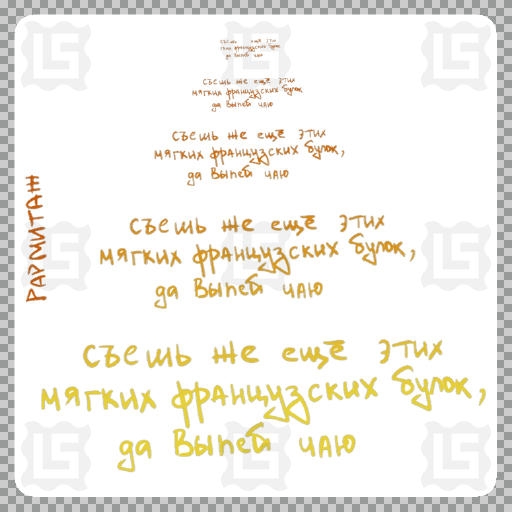 съешь ещё эти
мягких французских булок
да выпей чаю
съешь же ещё этих
мягких французских булок,
да выпей чаю
съешь же ещё этих
мягких французских булок,
да выпей чаю
РАРМИТАЖ
съешь же ещё этих
мягких французских булок,
да выпей чаю
съешь же ещё этих
мягких французских булок,
да выпей чаю